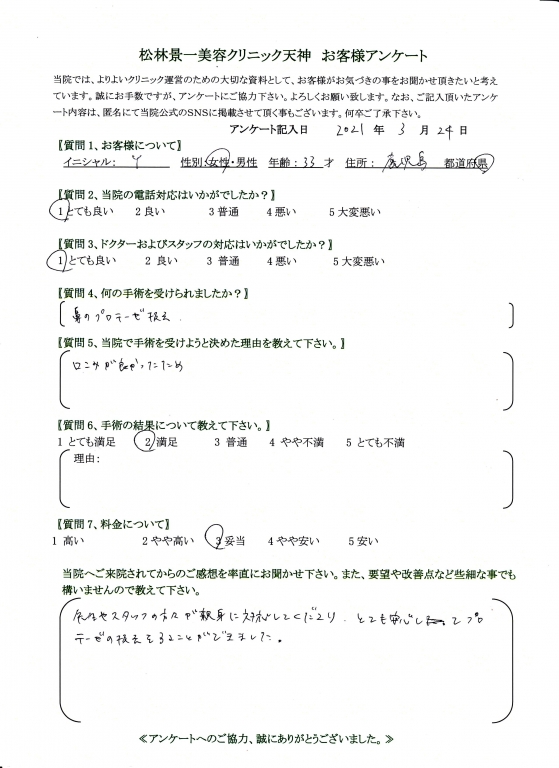 松林景一美容クリニック天神　お客様アンケート
当院では、よりよいクリニック運営のための大切な資料として、お客様がお気づきの事をお聞かせ頂きたいと考え
ています。誠にお手数ですが、アンケートにご協力下さい。よろしくお願い致します。なお、ご記入頂いたアンケ
ート内容は、匿名にて当院公式のSNSに掲載させて頂く事もございます。何卒ご了承下さい。
アンケート記入日　2021 年 3 月 24 日
【質問 1、お客様について】
イニシャル： Y　性別：女性・男性　年齢：33 才　住所： 鹿児島　都道府県
【質問 2、当院の電話対応はいかがでしたか？】
1 とても良い　2 良い　3 普通　4 悪い　5 大変悪い
【質問 3、ドクターおよびスタッフの対応はいかがでしたか？】
1 とても良い　2 良い　3 普通　4 悪い　5 大変悪い
【質問 4、何の手術を受けられましたか？】
鼻のプロテーゼ抜去
【質問 5、当院で手術を受けようと決めた理由を教えて下さい。】
口コミが良かったため
【質問 6、手術の結果について教えて下さい。】
1 とても満足　2 満足　3 普通　4 やや不満　5 とても不満
理由：
【質問 7、料金について】
1 高い　2 やや高い　3 妥当　4 やや安い　5 安い
当院へご来院されてからのご感想を率直にお聞かせ下さい。また、要望や改善点など些細な事でも
構いませんので教えて下さい。
先生やスタッフの方々が親身に対応してくださり、とても安心してプロ
テーゼの抜去をすることができました。
≪アンケートへのご協力、誠にありがとうございました。≫